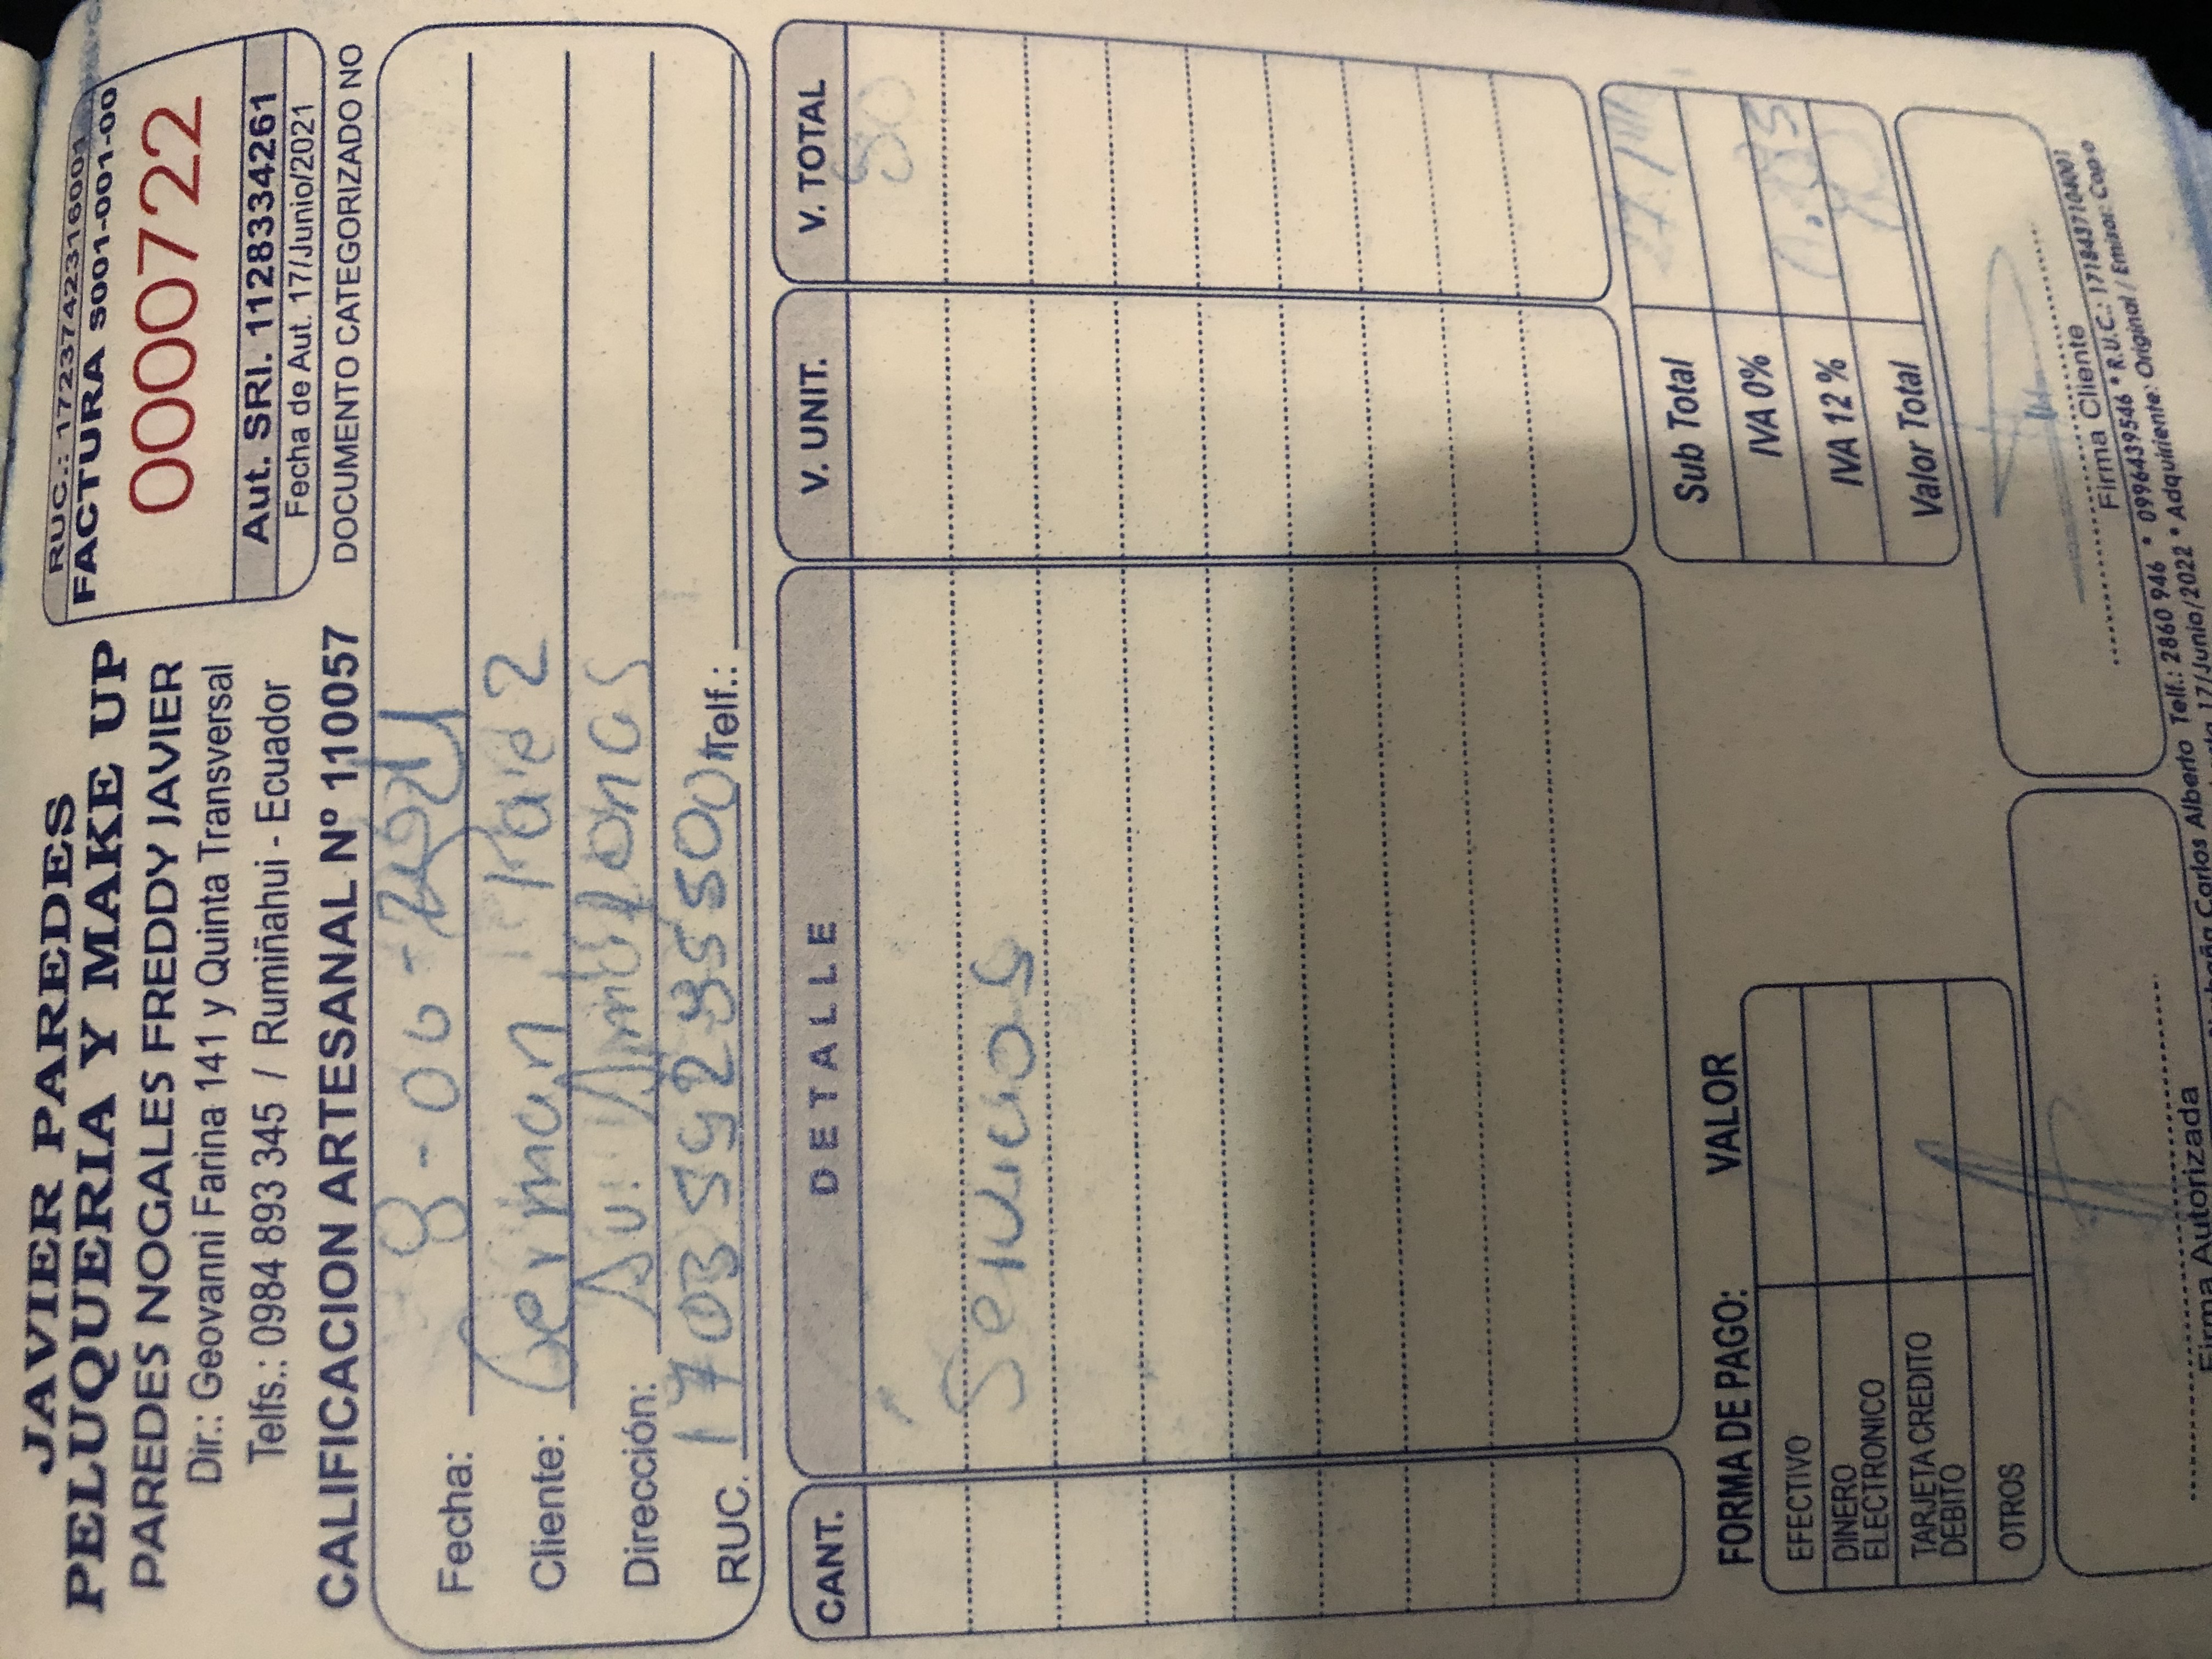 JAVIER PAREDES
PELUQUERIA Y MAKE UP
PAREDES NOGALES FREDDY JAVIER
Dir.: Geovanni Farina 141 y Quinta Transversal
Telfs.: 0984 893 345 / Rumiñahui - Ecuador
CALIFICACION ARTESANAL Nº 110057
RUC.: 1723742316001
FACTURA S001-001-00
0000722
Aut. SRI. 1128334261
Fecha de Aut. 17/Junio/2021
DOCUMENTO CATEGORIZADO NO
Fecha:
Cliente: German Paez
Dirección: Av. Amazonas
RUC. Telf.:
CANT. DETALLE V. UNIT. V. TOTAL
Servicios
Sub Total
IVA 0%
IVA 12 %
Valor Total
FORMA DE PAGO: VALOR
EFECTIVO
DINERO
ELECTRONICO
TARJETA CREDITO
DEBITO
OTROS
Firma Autorizada
Firma Cliente
Carlos Alberto Telf.: 2860 946 * 0996439546 * R.U.C.: 1718437104001
17/Junio/2022 * Adquiriente: Original / Emisor: Copia